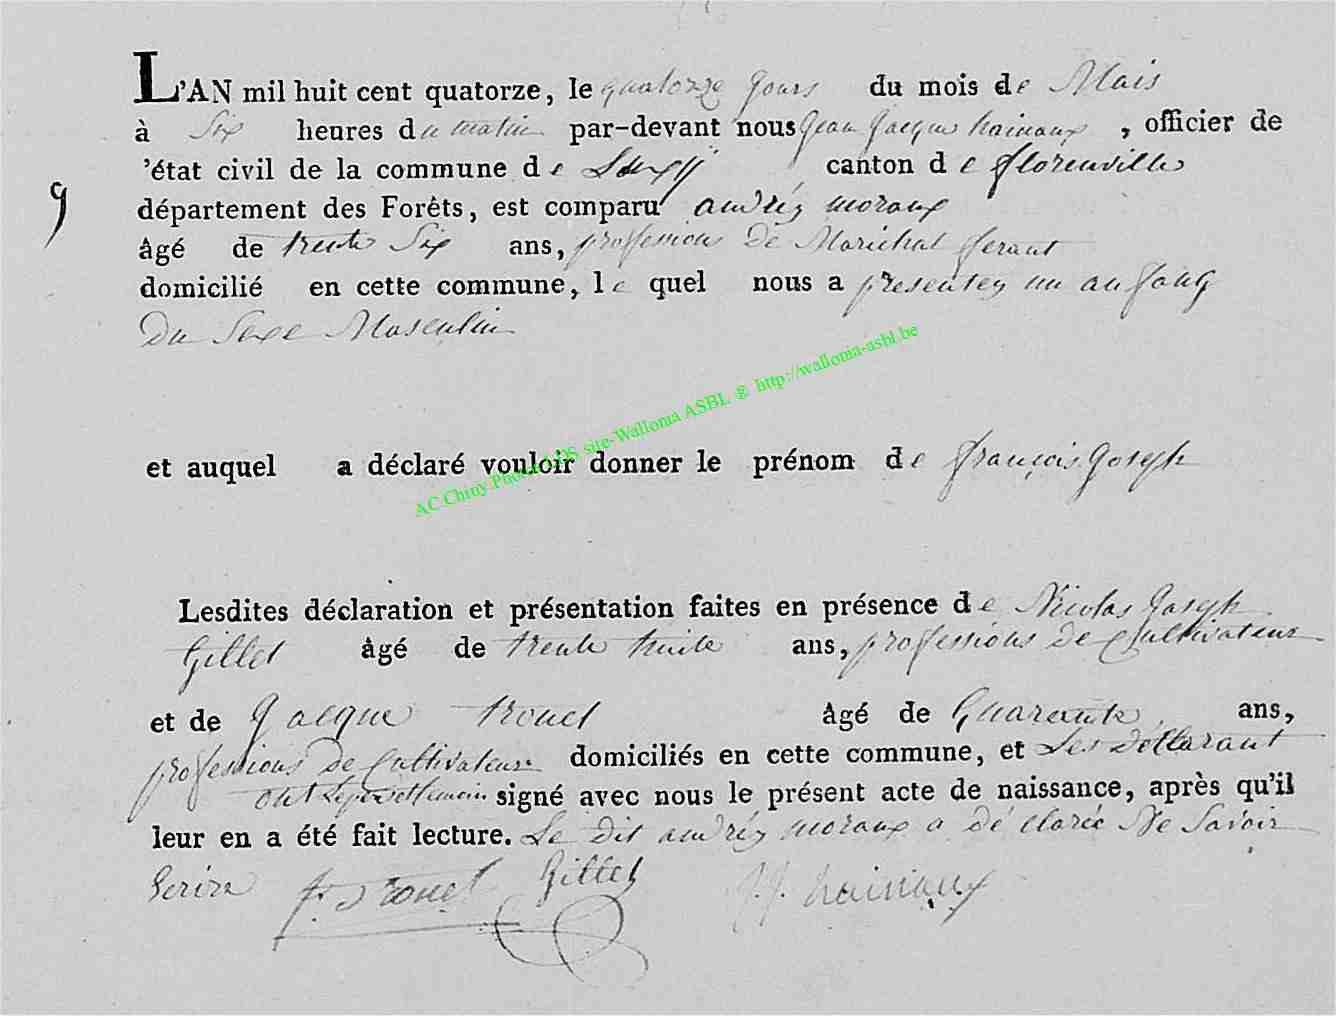 L'AN mil huit cent quatorze, le quatorze jours du mois de Mais
à Six heures du matin par-devant nous Jean Jacque hainaux, officier de
'état civil de la commune de canton de florenville
9
département des Forêts, est comparu andréz moraux
âgé de trente Six ans, profession de Maréchal ferant
domicilié en cette commune, le quel nous a presentez un anfang
Du Sexe Masculin
AC.Chiny.Photos LDS site-Wallonia ASBL @ http://wallonia-asbl.be
et auquel a déclaré vouloir donner le prénom de françois Joseph
Lesdites déclaration et présentation faites en présence de Nicolas Joseph
Gillet âgé de trente huite ans, professions de Cultivateur
et de Jacque trouet âgé de Quarante ans,
professions De Cultivateur domiciliés en cette commune, et Les Déclarant
ont signé avec nous le présent acte de naissance, après qu'il
leur en a été fait lecture. Le Dit andréz moraux a déclaré Ne Savoir
Ecrire J. trouet Gillet J. J. hainaux